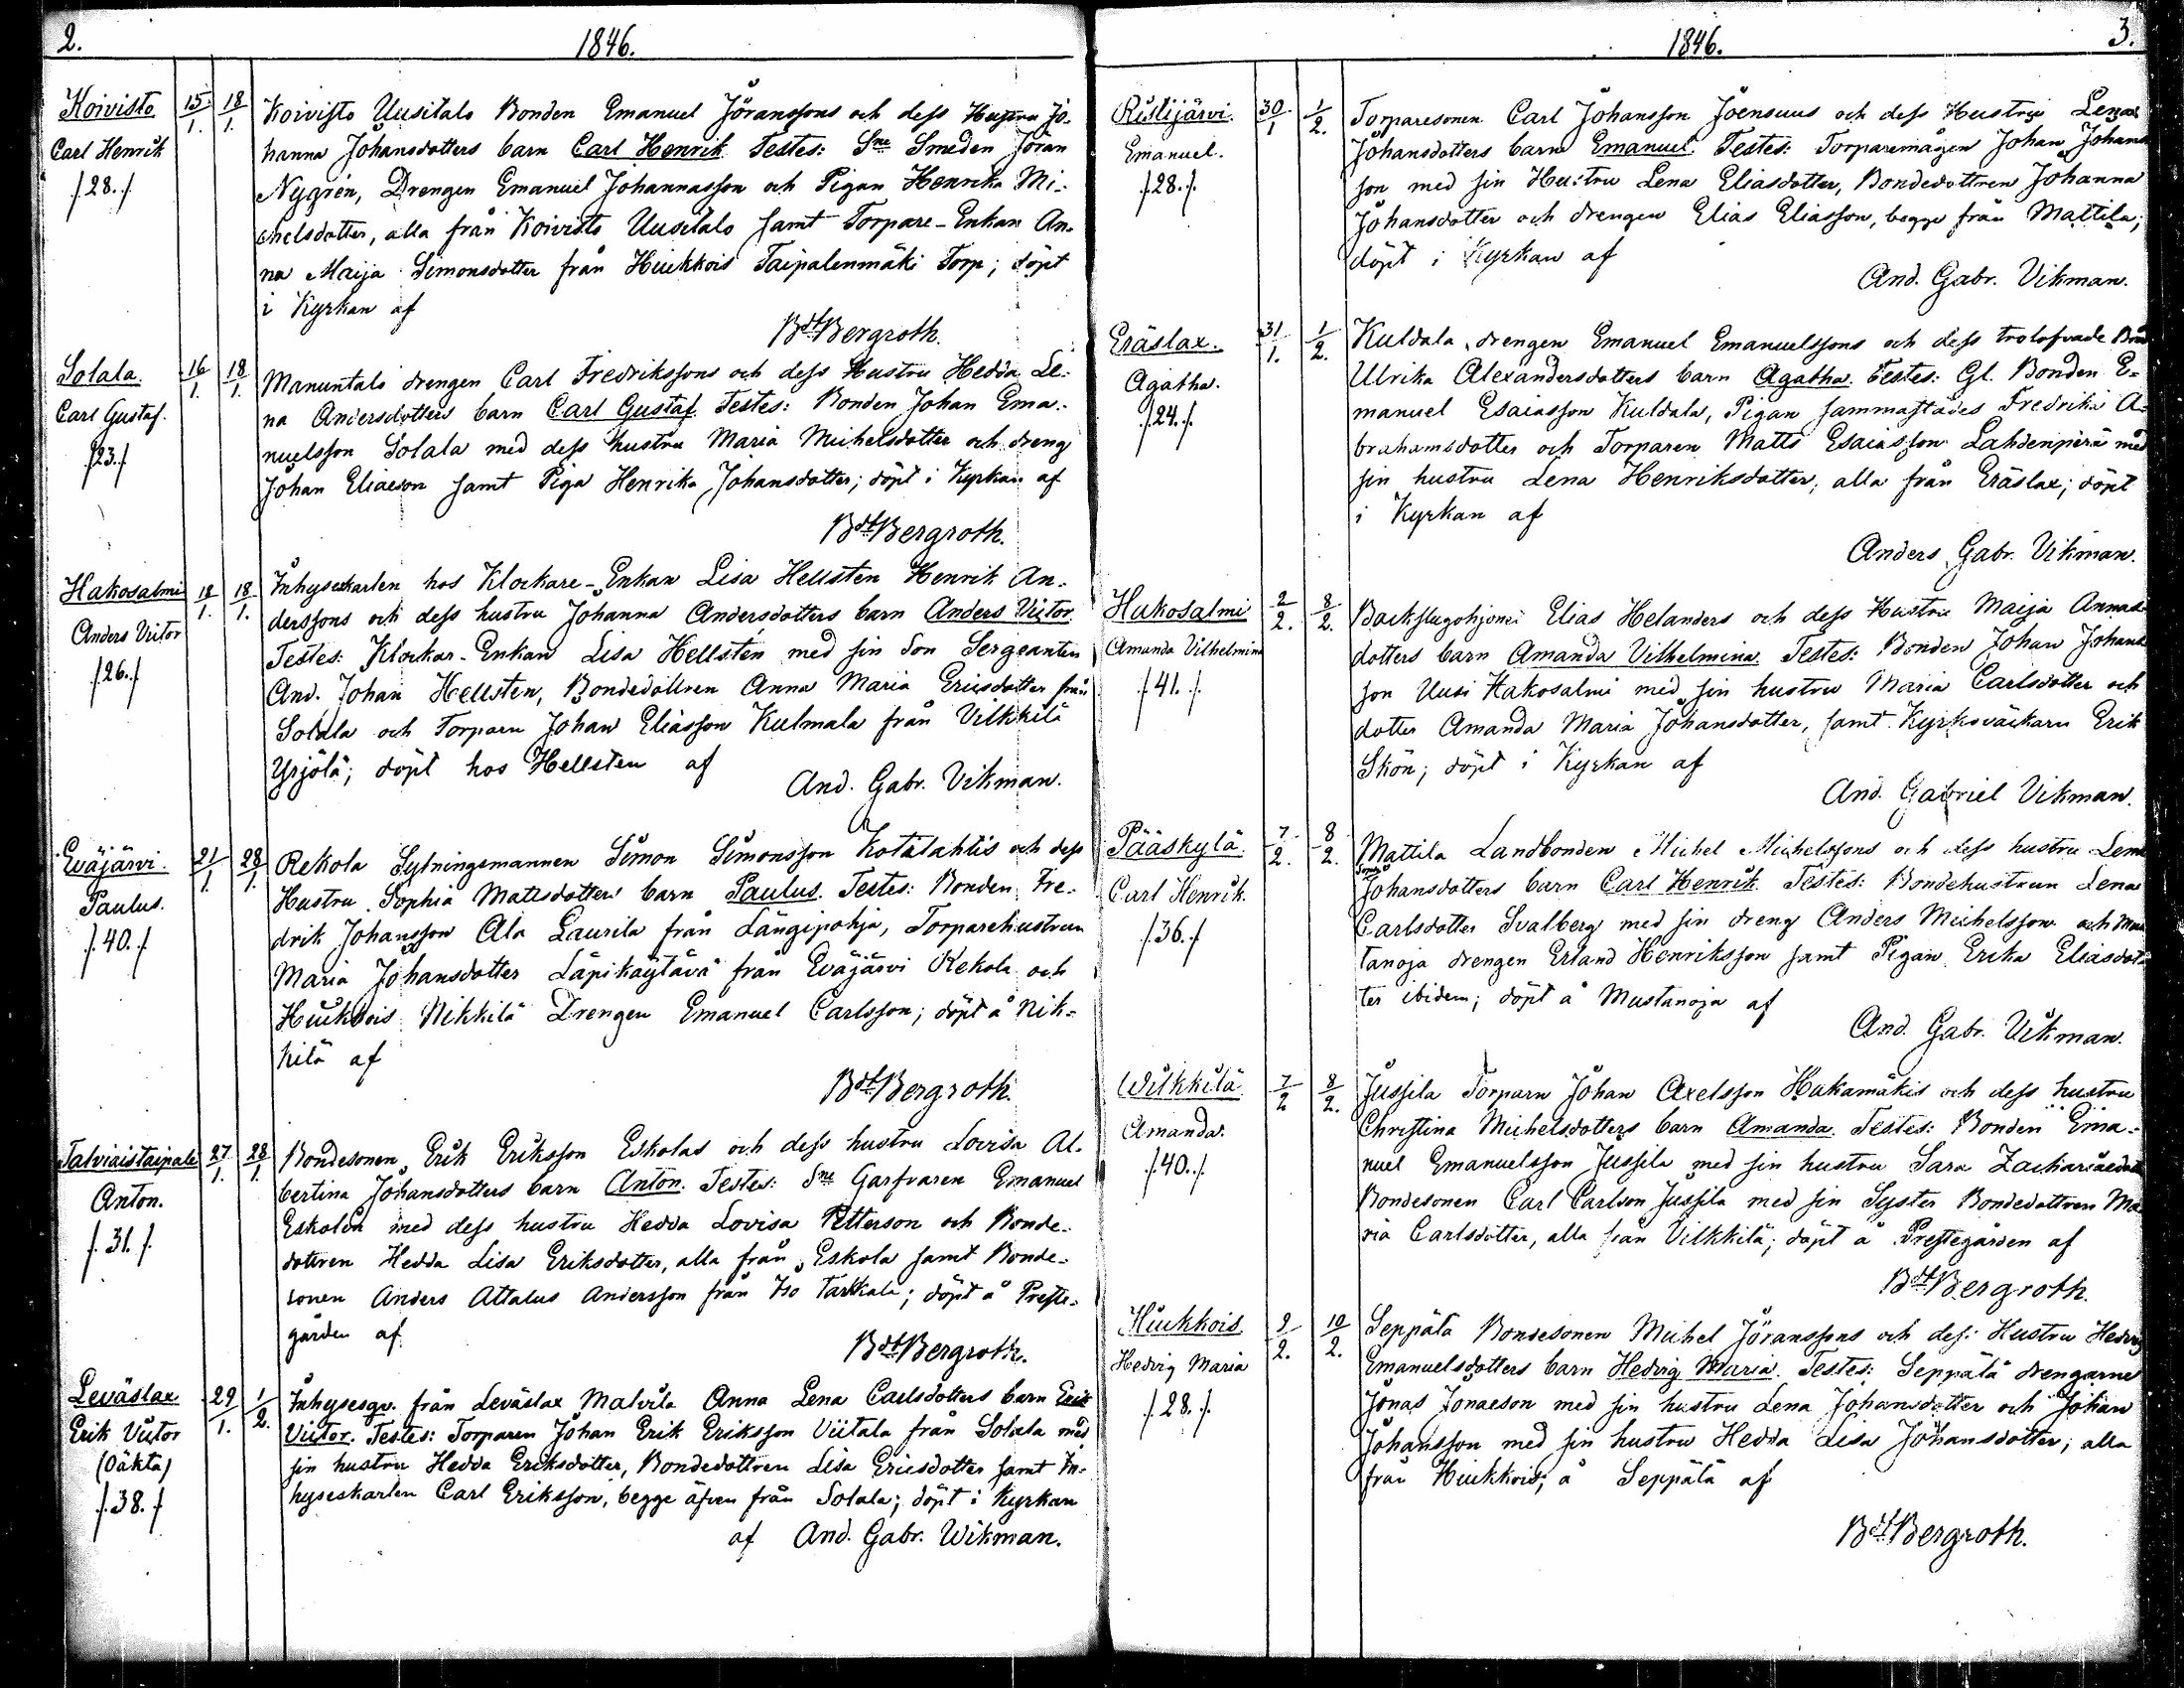 2.
1846.
Koivisto
Carl Henrik
/28./
15/1. 18/1.
Koivisto Uusitalo Bonden Emanuel Jöranssons och dess Hustru Jo-
hanna Johansdotters barn Carl Henrik. Testes: Sne Smeden Jöran
Nygrén, Drengen Emanuel Johannasson och Pigan Henrika Mi-
chelsdotter, alla från Koivisto Uusitalo samt Torpare-Enkan An-
na Maija Simonsdotter från Hiukkois Taipalenmäki Torp; döpt
i Kyrkan af
Bdt Bergroth.
Solala.
Carl Gustaf.
/23./
16/1. 18/1.
Manuntalo drengen Carl Fredrikssons och dess Hustru Hedda Le-
na Andersdotters barn Carl Gustaf. Testes: Bonden Johan Ema-
nuelsson Solala med dess hustru Maria Michelsdotter och dreng
Johan Eliaeson samt Piga Henrika Johansdotter; döpt i Kyrkan af
Bdt Bergroth.
Hakosalmi
Anders Victor
/26./
18/1. 18/1.
Inhyseskarlen hos Klockare-Enkan Lisa Hellsten Henrik An-
derssons och dess hustru Johanna Andersdotters barn Anders Victor.
Testes: Klockar-Enkan Lisa Hellsten med sin Son Sergeanten
And. Johan Hellsten, Bondedottren Anna Maria Ericsdotter från
Solala och Torparn Johan Eliasson Kulmala från Vilkkilä
Yrjölä; döpt hos Hellsten af
And. Gabr. Vikman.
Eväjärvi.
Paulus.
/40./
21/1. 28/1.
Rekola Sytningsmannen Simon Simonsson Kotalahtis och dess
Hustru Sophia Mattsdotters barn Paulus. Testes: Bonden Fre-
drik Johansson Ala Laurila från Längipohja, Torparehustrun
Maria Johansdotter Läpikäytävä från Eväjärvi Rekola och
Hiukkois Nikkilä Drengen Emanuel Carlsson; döpt å Nik-
kilä af
Bdt Bergroth.
Talviaistaipale
Anton.
/31./
27/1. 28/1.
Bondesonen Erik Eriksson Eskolas och dess hustru Lovisa Al-
bertina Johansdotters barn Anton. Testes: Sne Garfvaren Emanuel
Eskolin med dess hustru Hedda Lovisa Petterson och Bonde-
dottren Hedda Lisa Eriksdotter, alla från Eskola samt Bonde-
sonen Anders Attalus Andersson från Iso Tarkkala; döpt å Preste-
gården af
Bdt Bergroth.
Leväslax
Erik Victor
(Oäkta)
/38./
29/1. 1/2.
Inhysesqv. från Leväslax Malvila Anna Lena Carlsdotters barn Erik
Victor. Testes: Torparen Johan Erik Eriksson Viitala från Solala med
sin hustru Hedda Eriksdotter, Bondedottren Lisa Ericsdotter samt In-
hyseskarlen Carl Eriksson, begge äfven från Solala; döpt i Kyrkan
af And. Gabr. Wikman.
1846.
3.
Ristijärvi.
Emanuel.
/28./
30/1 1/2.
Torparesonen Carl Johansson Joensuus och dess Hustru Lenas
Johansdotters barn Emanuel. Testes: Torparemågen Johan Johans
son med sin Hustru Lena Eliasdotter, Bondedottren Johanna
Johansdotter och drengen Elias Eliasson, begge från Mattila;
döpt i Kyrkan af
And. Gabr. Vikman.
Eräslax.
Agatha.
/24./
31/1. 1/2.
Kuldala drengen Emanuel Emanuelssons och dess trolofvade Brud
Ulrika Alexandersdotters barn Agatha. Testes: Gl. Bonden E-
manuel Esaiasson Kuldala, Pigan sammastädes Fredrika A-
brahamsdotter och Torparen Matts Esaiasson Lahdenperä med
sin hustru Lena Henriksdotter, alla från Eräslax; döpt
i Kyrkan af
Anders Gabr. Vikman.
Hakosalmi
Amanda Vilhelmina
/41./
2/2. 8/2.
Backstugohjonet Elias Helanders och dess Hustru Maija Annas-
dotters barn Amanda Vilhelmina. Testes: Bonden Johan Johans
son Uusi Hakosalmi med sin hustru Maria Carlsdotter och
dotter Amanda Maria Johansdotter, samt Kyrkoväckarn Erik
Skön; döpt i Kyrkan af
And. Gabriel Vikman.
Pääskylä.
Carl Henrik.
/36./
7/2. 8/2.
Mattila Landbonden Michel Michelssons och dess hustru Lena
Johansdotters barn Carl Henrik. Testes: Bondehustrun Lena
Carlsdotter Svalberg med sin dreng Anders Michelsson och Mus
tanoja drengen Erland Henriksson samt Pigan Erika Eliasdot-
ter ibidem; döpt å Mustanoja af
And. Gabr. Vikman.
Wilkkilä
Amanda.
/40./
7/2 8/2.
Jussila Torparn Johan Axelsson Hakamäkis och dess hustru
Christina Michelsdotters barn Amanda. Testes: Bonden Ema-
nuel Emanuelsson Jussila med sin hustru Sara Zachariaedott
Bondesonen Carl Carlson Jussila med sin Syster Bondedottren Ma
ria Carlsdotter, alla från Vilkkilä; döpt å Prestegården af
Bdt Bergroth.
Hiukkois
Hedvig Maria
/28./
9/2. 10/2.
Seppälä Bondesonen Michel Jöranssons och dess Hustru Hedvig
Emanuelsdotters barn Hedvig Maria. Testes: Seppälä drengarne
Jonas Jonaeson med sin hustru Lena Johansdotter och Johan
Johansson med sin hustru Hedda Lisa Johansdotter; alla
från Hiukkois; å Seppälä af
Bdt Bergroth.